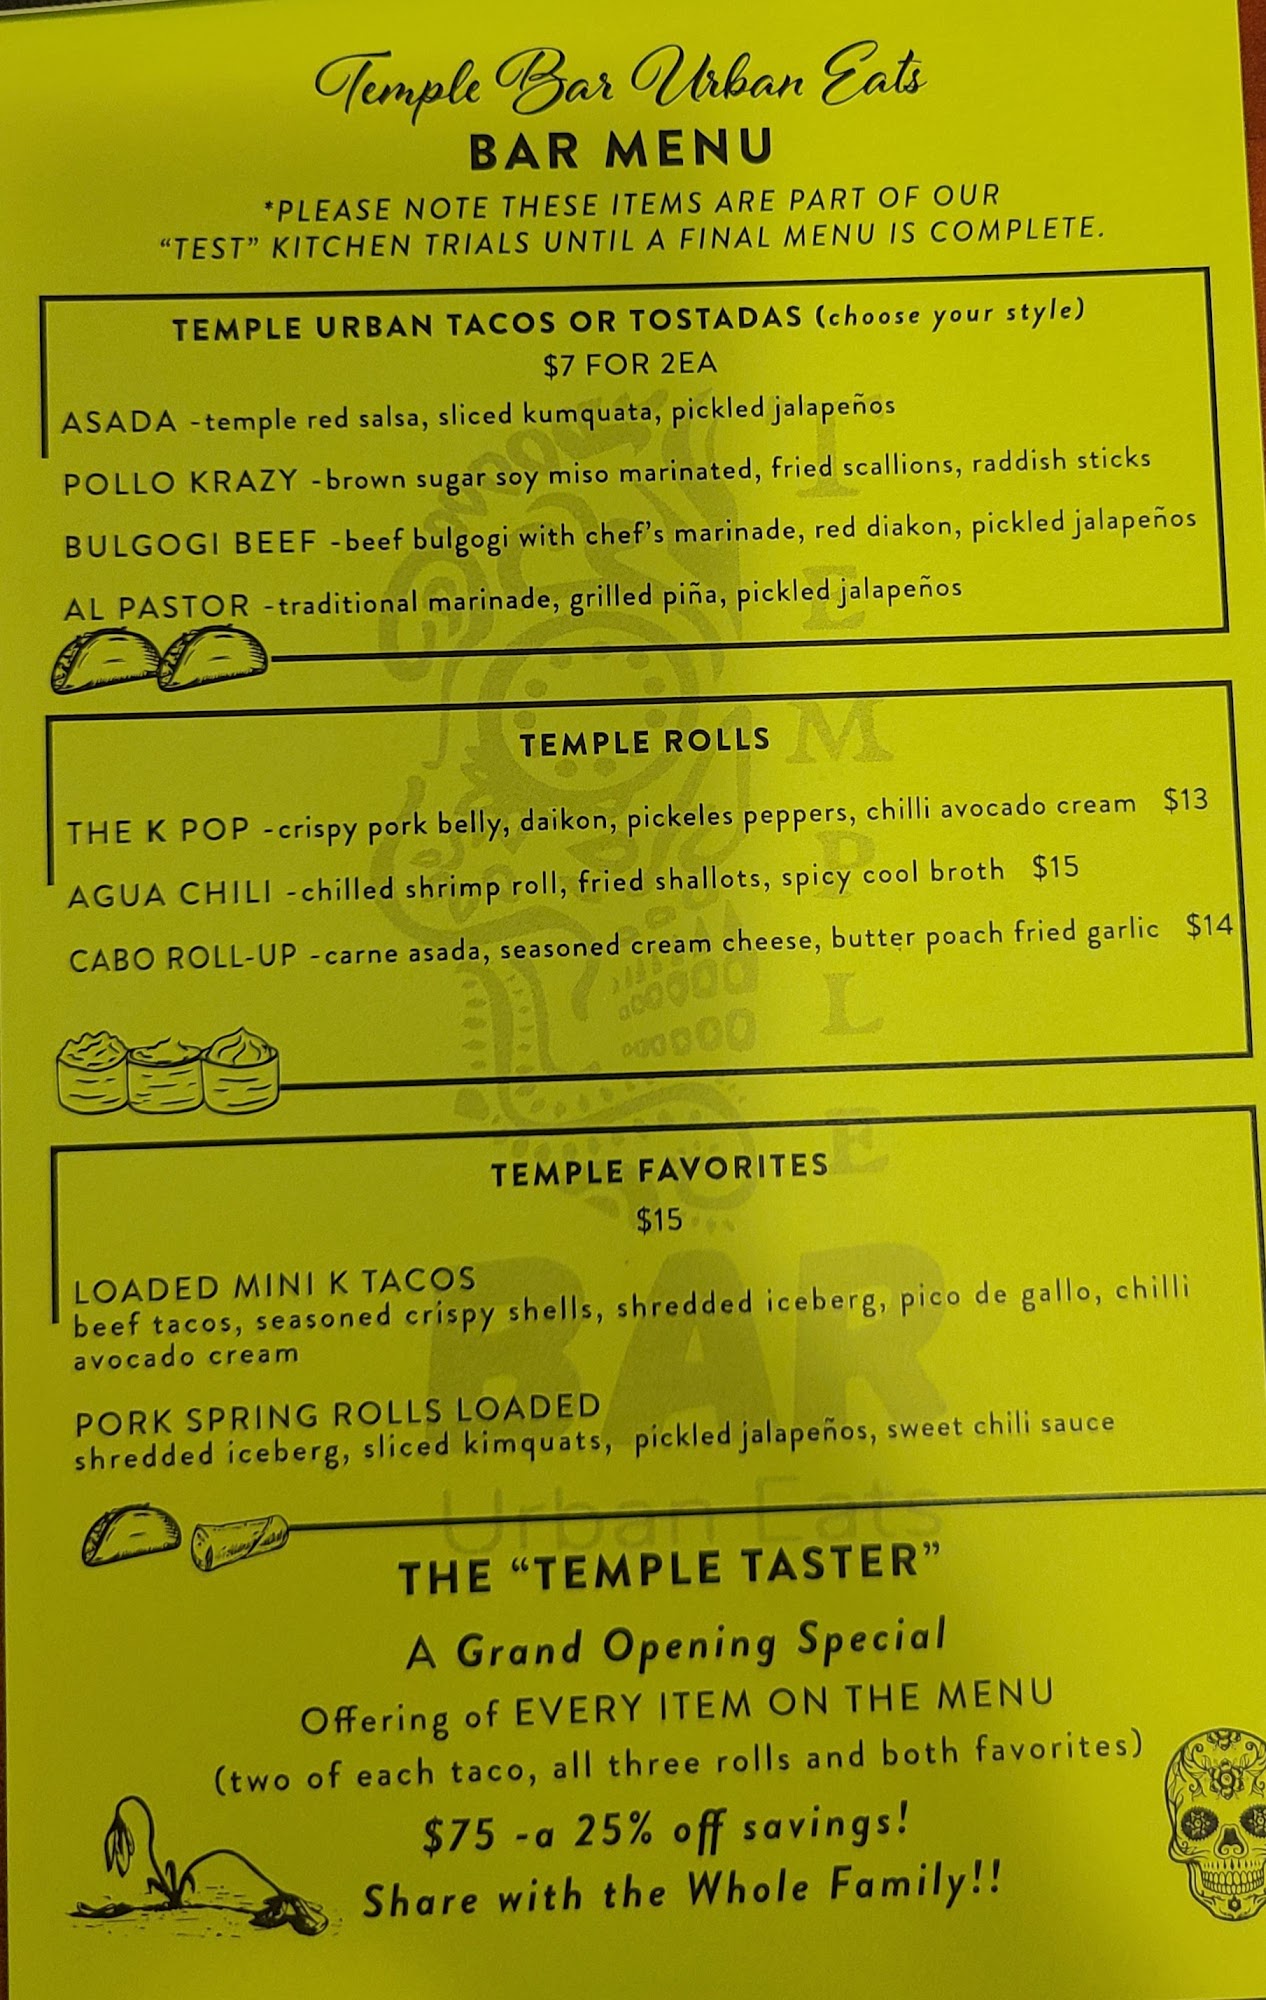 Temple Bar Urban Eats
BAR MENU
*PLEASE NOTE THESE ITEMS ARE PART OF OUR
“TEST” KITCHEN TRIALS UNTIL A FINAL MENU IS COMPLETE.
TEMPLE URBAN TACOS OR TOSTADAS (choose your style)
$7 FOR 2EA
ASADA -temple red salsa, sliced kumquata, pickled jalapeños
POLLO KRAZY -brown sugar soy miso marinated, fried scallions, raddish sticks
BULGOGI BEEF -beef bulgogi with chef’s marinade, red diakon, pickled jalapeños
AL PASTOR -traditional marinade, grilled piña, pickled jalapeños
TEMPLE ROLLS
THE K POP -crispy pork belly, daikon, pickeles peppers, chilli avocado cream $13
AGUA CHILI -chilled shrimp roll, fried shallots, spicy cool broth $15
CABO ROLL-UP -carne asada, seasoned cream cheese, butter poach fried garlic $14
TEMPLE FAVORITES
$15
LOADED MINI K TACOS
beef tacos, seasoned crispy shells, shredded iceberg, pico de gallo, chilli
avocado cream
PORK SPRING ROLLS LOADED
shredded iceberg, sliced kimquats, pickled jalapeños, sweet chili sauce
THE “TEMPLE TASTER”
A Grand Opening Special
Offering of EVERY ITEM ON THE MENU
(two of each taco, all three rolls and both favorites)
$75 -a 25% off savings!
Share with the Whole Family!!
TEMPLE
BAR
Urban Eats